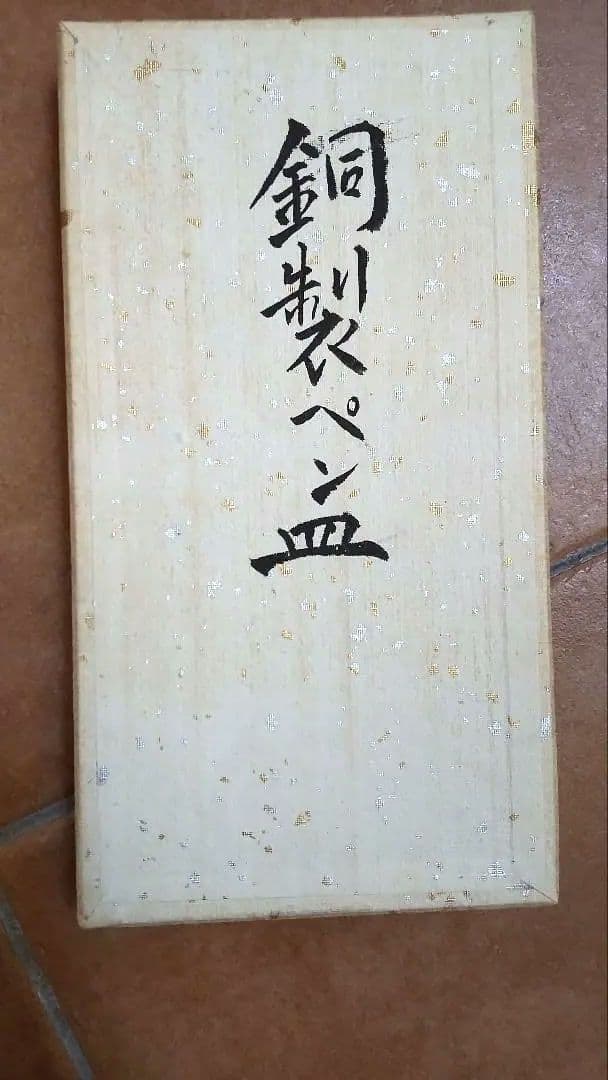 銅製ペン皿